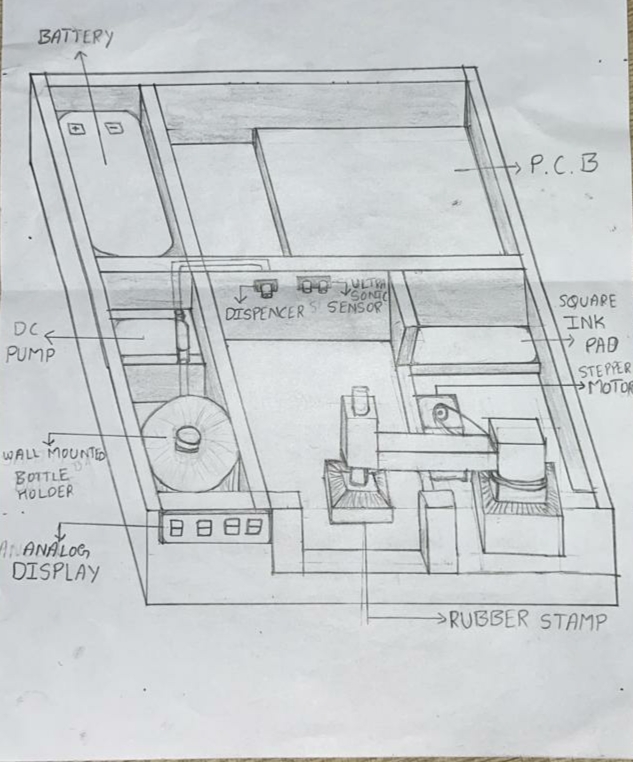 BATTERY
+ -
P.C.B
DISPENCER
ULTRA
SONIC
SENSOR
SQUARE
INK
PAD
DC
PUMP
STEPPER
MOTOR
WALL MOUNTED
BOTTLE
HOLDER
ANALOG
DISPLAY
RUBBER STAMP